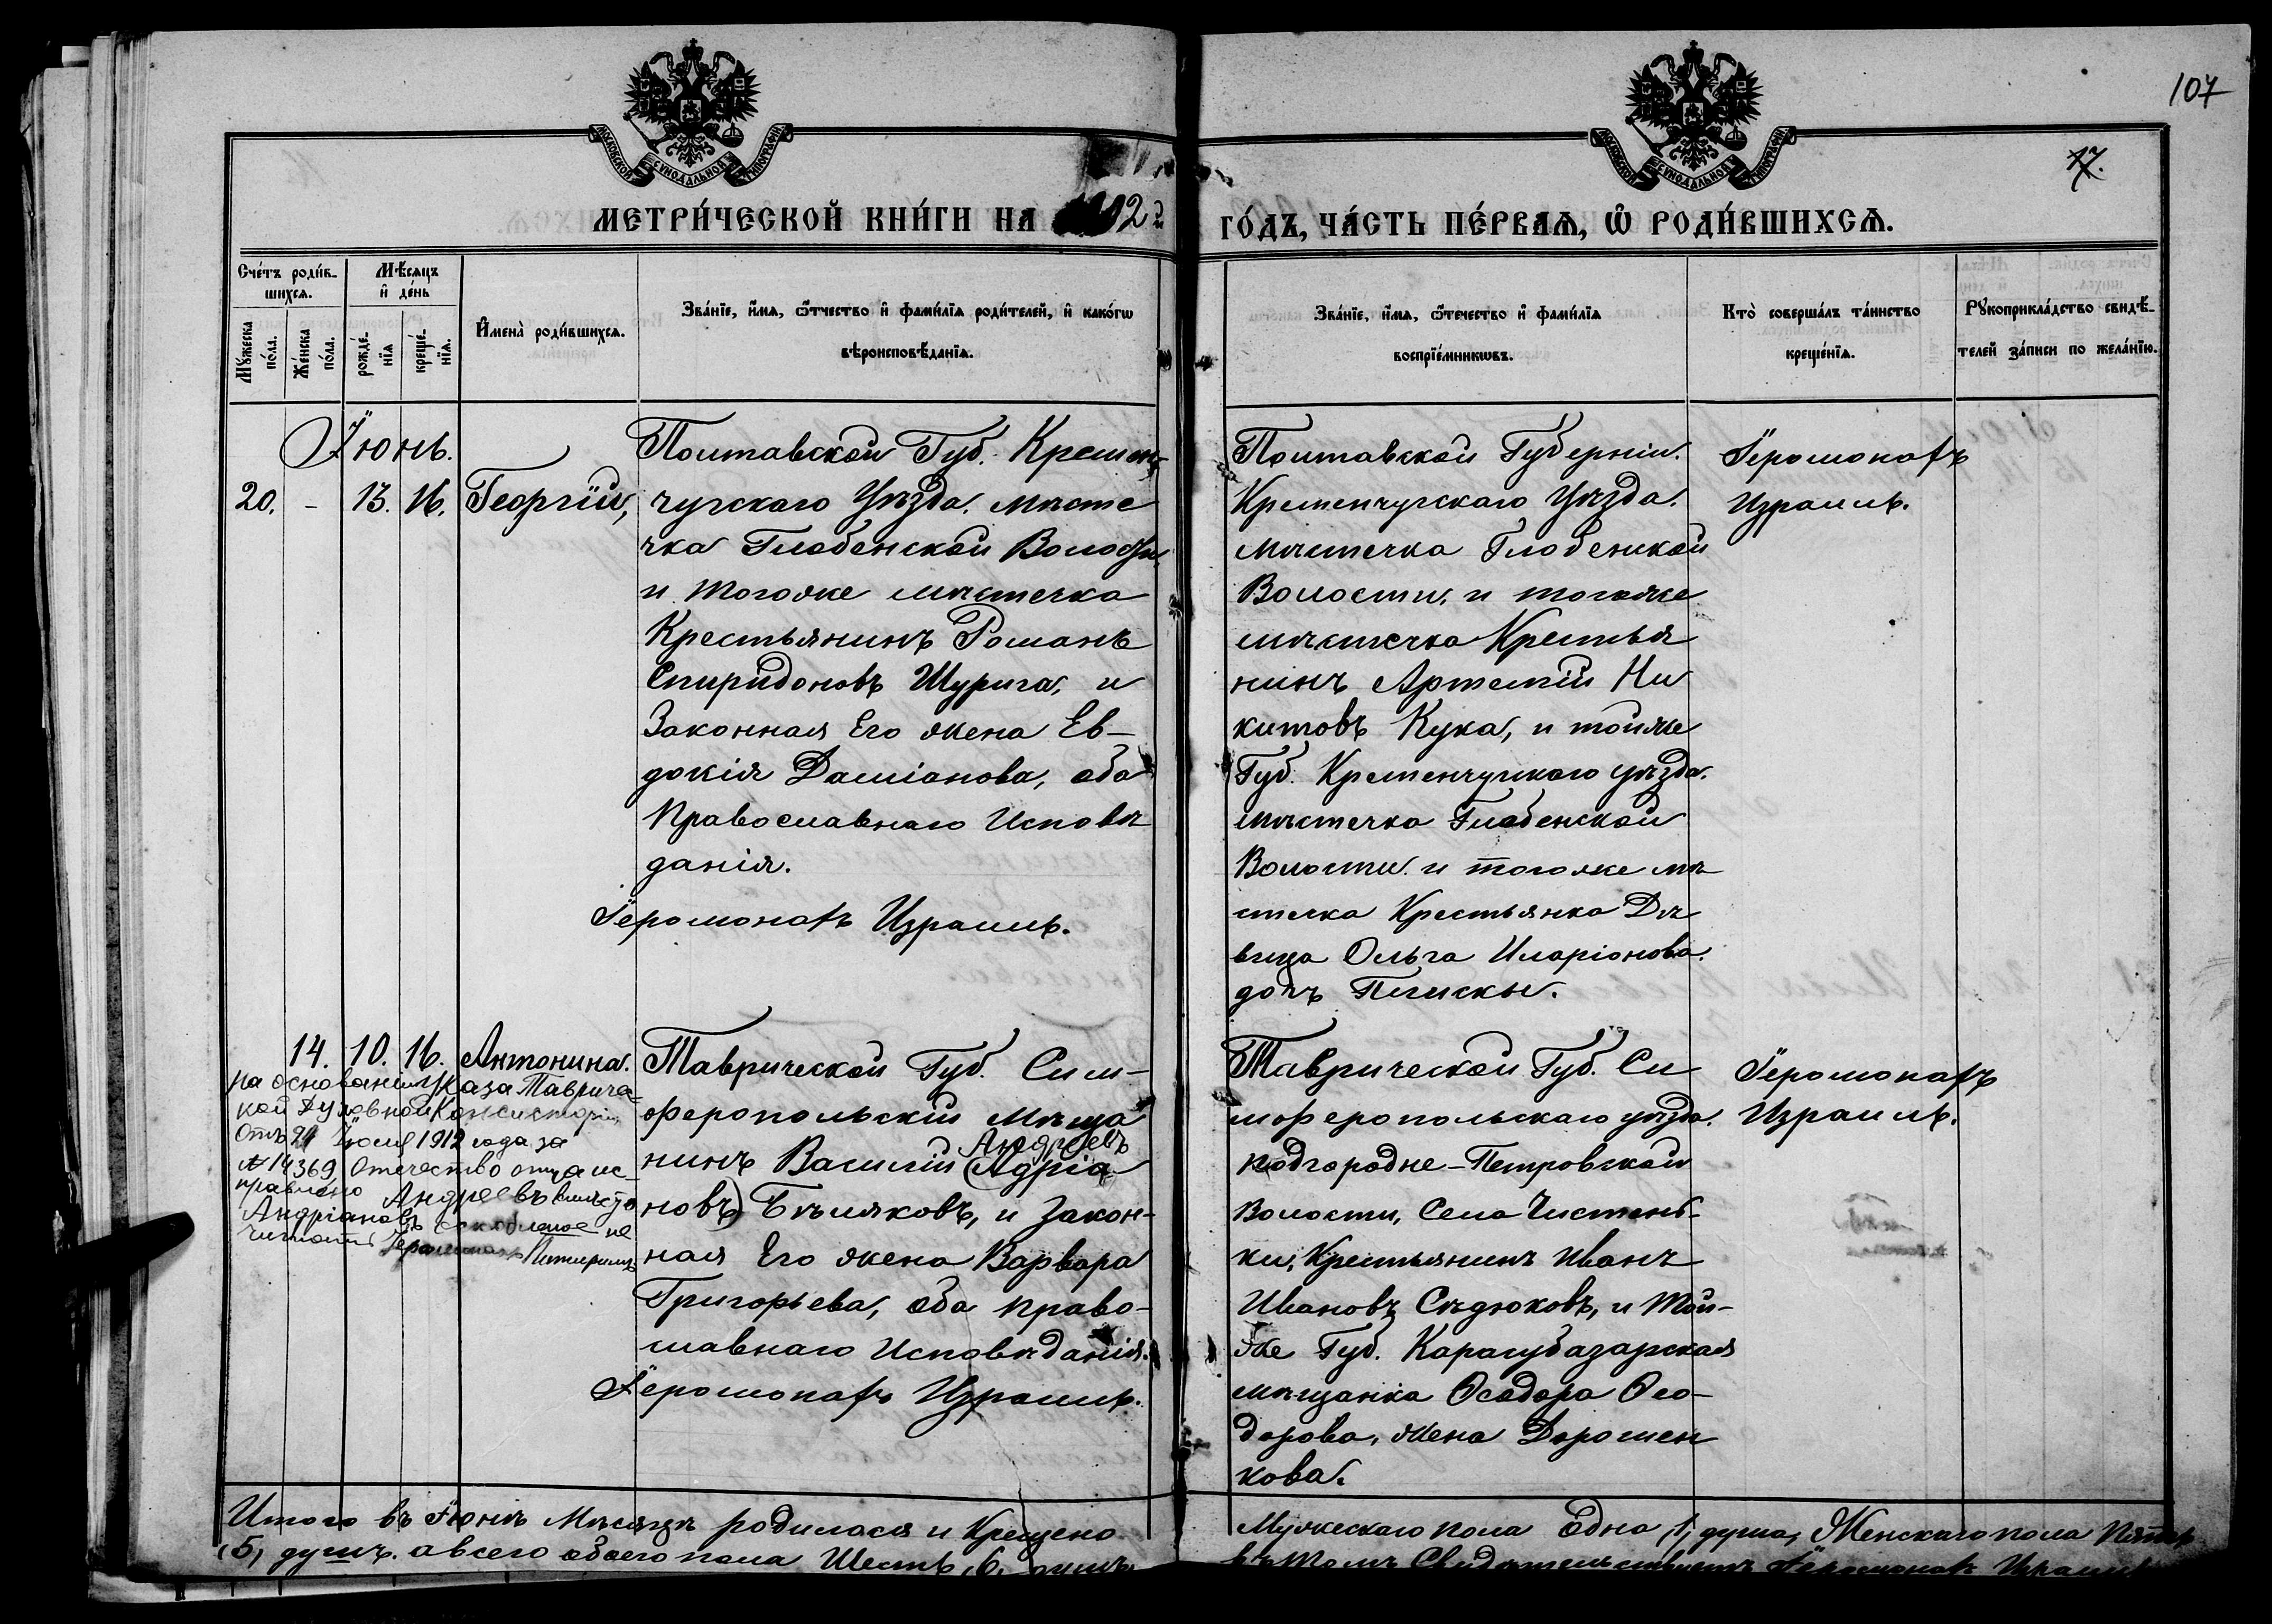 107
17.
МОСКОВСКОЙ СѴНОДАЛЬНОЙ ТИПОГРАФІИ
МОСКОВСКОЙ СѴНОДАЛЬНОЙ ТИПОГРАФІИ
МЕТРИ́ЧЕСКОЙ КНИ́ГИ НА 1902 й
ГО́ДЪ, ЧА́СТЬ ПЕ́РВАѦ, Ѿ РОДИ́ВШИХСѦ.
Сче́тъ роди́в-
шихсѧ.
Мѣ́сѧцъ
и҆ де́нь
Мꙋ́жеска
по́ла.
Же́нска
по́ла.
рожде́-
нїѧ
креще́-
нїѧ.
И҆мена̀ роди́вшихсѧ.
Зва́нїе, и҆́мѧ, ѻ҆́тчество и҆ фами́лїѧ роди́телей, и҆ како́гѡ
вѣроисповѣ́данїѧ.
Зва́нїе, и҆́мѧ, ѻ҆́течество и҆ фами́лїѧ
воспрїе́мникѡвъ.
Кто̀ соверша́лъ та́инство
креще́нїѧ.
Рꙋкоприкла́дство свидѣ́-
телей за́писи по жела́нїю.
Іюнь.
20. - 13. 16. Георгій,
Полтавской Губ. Кремен-
чугскаго Уѣзда. Мѣсте
чка Глобенской Волости,
и тогоже мѣстечка
Крестьянинъ Романъ
Спиридоновъ Шурига, и
Законная Его жена Ев-
докія Даміанова, оба
Православнаго Исповѣ
данія.
Іеромонахъ Израиль.
Полтавской Губерніи.
Кременчугскаго Уѣзда.
Мѣстечка Глобенской
Волости, и тогоже
мѣстечка Крестья
нинъ Артемій Ни
китовъ Кука, и тойже
Губ. Кременчугскаго уѣзда.
мѣстечка Глобенской
Волости и тогоже мѣ
стечка Крестьянка Дѣ
вица Ольга Иларіонова.
дочь
Іеромонахъ
Израиль.
14. 10. 16. Антонина.
На основаніи Указа Тавричес
кой Духовной Консисторіи,
Отъ 21 Іюля 1912 года за
№ 14369 Отечество отца ис-
правлено Андреевъ вмѣсто
Андріановъ не
читать Іеромонахъ Питиримъ
Таврической Губ. Сим-
феропольскій Мѣща
Андреевъ
нинъ Василій (Адріа
новъ) Бѣляковъ, и Закон-
ная Его жена Варвара
Григорьева, оба право-
славнаго Исповѣданія.
Іеромонахъ Израиль.
Таврической Губ. Си
мферопольскаго уѣзда.
Подгородне-Петровской
Волости, Села Чистень-
ки, Крестьянинъ Иванъ
Ивановъ Сѣдюковъ, и Той-
же Губ. Карасубазарская
мѣщанка Ѳеодора Ѳео-
дорова, жена Дорошен
кова.
Іеромонахъ
Израиль.
Итого въ Іюнѣ Мѣсяцѣ родилося и Крещено
Мужескаго пола Одна (1) душа, Женскаго пола Пять
(5) душъ. а всего обоего пола Шесть (6) душъ.
въ томъ Свидѣтельствуетъ Іеромонахъ Израиль